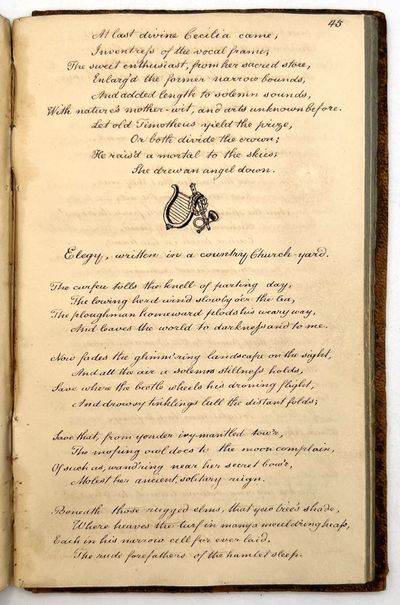 45
At last divine Cecilia came,
Inventress of the vocal frame;
The sweet enthusiast, from her sacred store,
Enlarg'd the former narrow bounds,
And added length to solemn sounds,
With nature's mother-wit, and arts unknown before.
Let old Timotheus yield the prize,
Or both divide the crown;
He rais'd a mortal to the skies;
She drew an angel down.
Elegy, written in a country Church-yard.
The curfeu tolls the knell of parting day,
The lowing herd wind slowly o'er the lea,
The ploughman homeward plods his weary way,
And leaves the world to darkness and to me.
Now fades the glimm'ring landscape on the sight,
And all the air a solemn stillness holds,
Save where the beetle wheels his droning flight,
And drowsy tinklings lull the distant folds;
Save that, from yonder ivy-mantled tow'r,
The moping owl does to the moon complain,
Of such as, wand'ring near her secret bow'r,
Molest her ancient, solitary reign.
Beneath those rugged elms, that yew tree's shade,
Where heaves the turf in many a mould'ring heap,
Each in his narrow cell for ever laid,
The rude forefathers of the hamlet sleep.